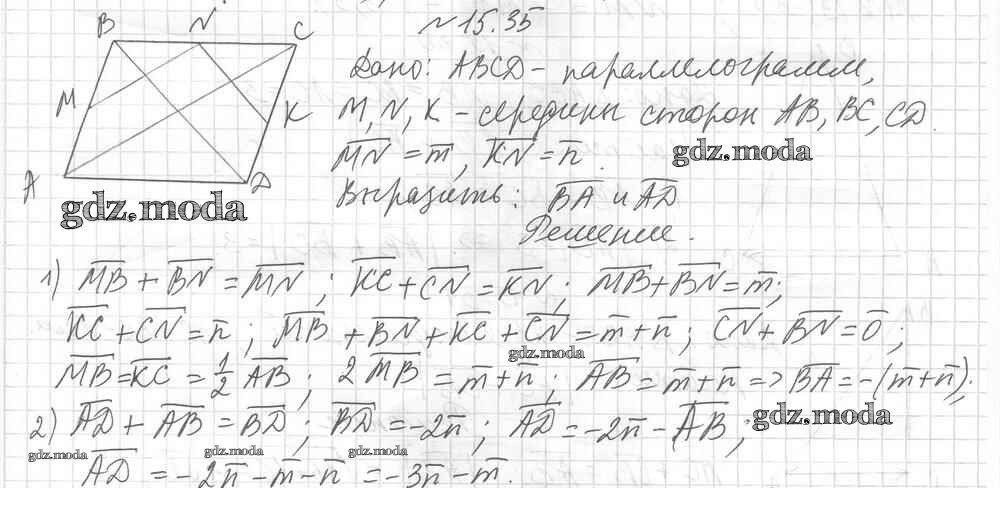 N 15.35
B N C
Дано: ABCD - параллелограмм,
M K
M, N, K - середины сторон AB, BC, CD.
M̅N̅ = m̅, K̅N̅ = n̅.
gdz.moda
A D
Выразить: B̅A̅ и A̅D̅
gdz.moda
Решение.
1) M̅B̅ + B̅N̅ = M̅N̅; K̅C̅ + C̅N̅ = K̅N̅; M̅B̅ + B̅N̅ = m̅;
K̅C̅ + C̅N̅ = n̅; M̅B̅ + B̅N̅ + K̅C̅ + C̅N̅ = m̅ + n̅; C̅N̅ + B̅N̅ = 0̅;
gdz.moda
M̅B̅ = K̅C̅ = 1/2 A̅B̅; 2 M̅B̅ = m̅ + n̅; A̅B̅ = m̅ + n̅ => B̅A̅ = -(m̅ + n̅);
2) A̅D̅ + A̅B̅ = B̅D̅; B̅D̅ = -2n̅; A̅D̅ = -2n̅ - A̅B̅;
gdz.moda
gdz.moda gdz.moda gdz.moda
A̅D̅ = -2n̅ - m̅ - n̅ = -3n̅ - m̅.